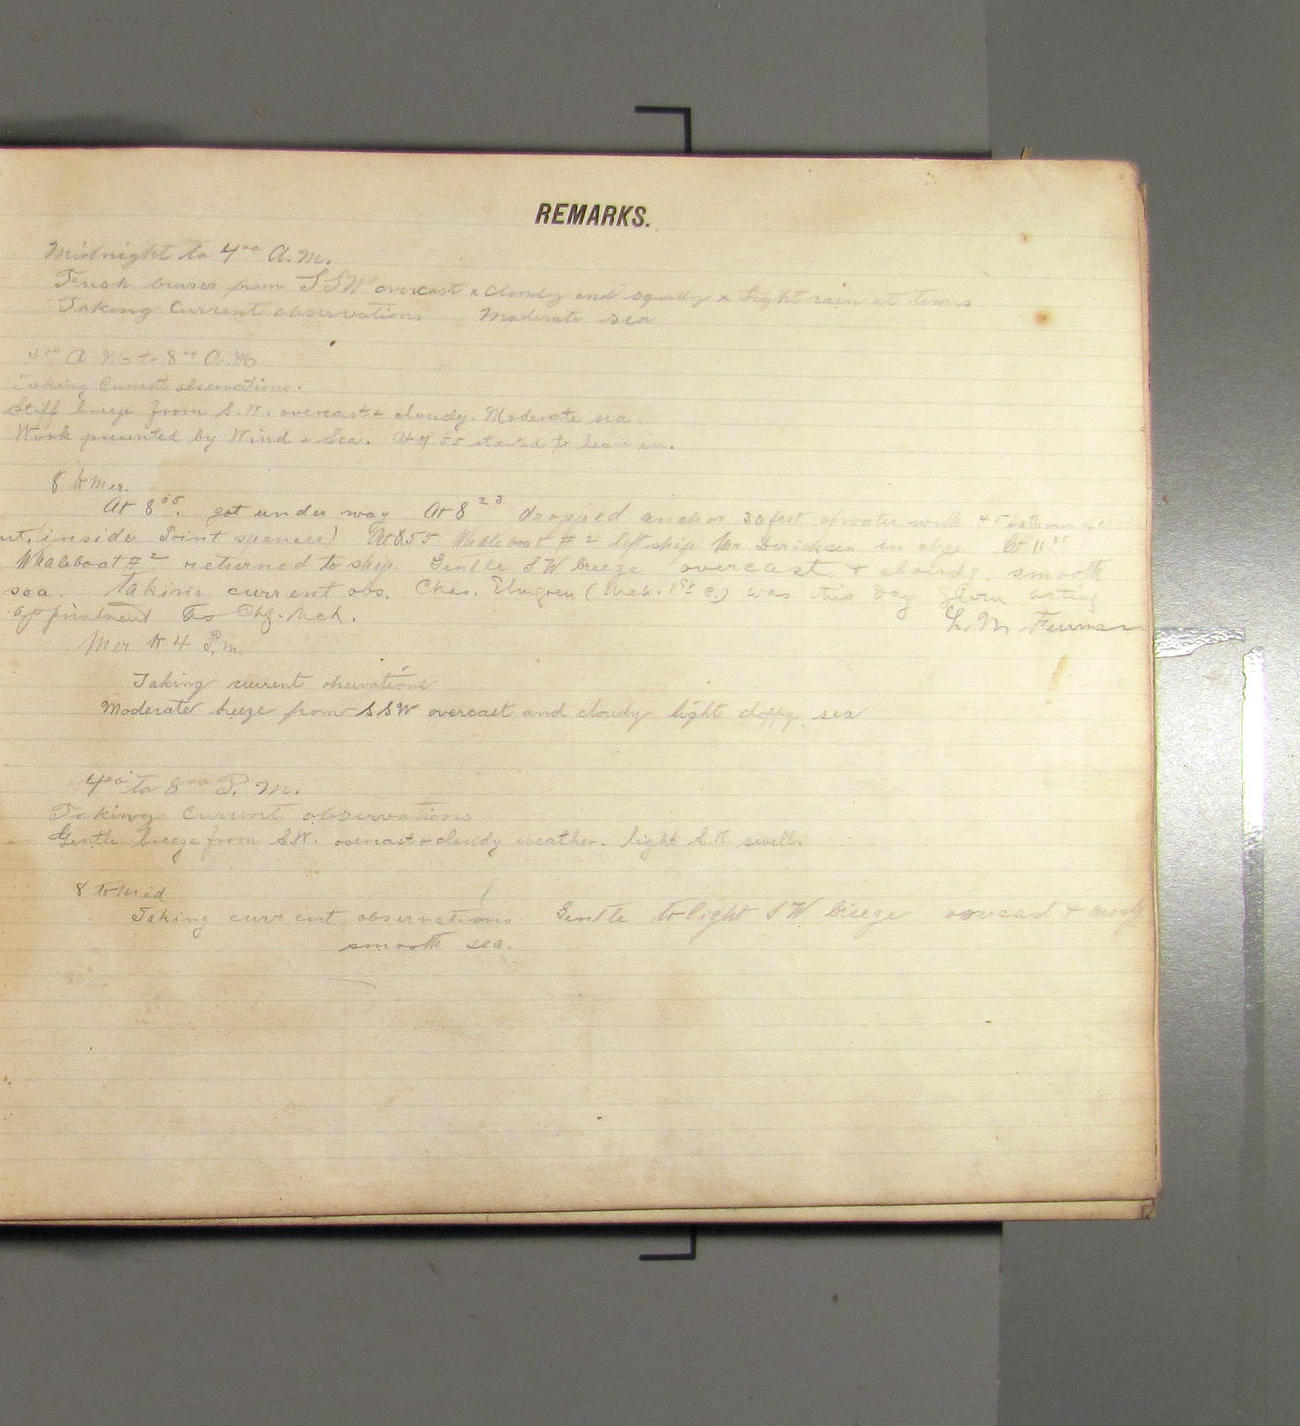 REMARKS.
Midnight to 4⁰⁰ A.M.
Fresh breeses from SSW overcast & cloudy and squally & Light rain at times
Taking Current observations Moderate sea
4⁰⁰ A M to 8⁰⁰ A.M
Taking Current observations.
Stiff breeze from S.W. overcast & cloudy. Moderate sea.
Work prevented by Wind & Sea. At 7 55 started to heave in.
8 to Mer.
At 8⁰⁵. got under way At 8²³ dropped anchor 30 feet of water with 45 fathoms
out, (inside Point Spencer) At 8.55 Whaleboat #2 left ship Mr Dericksen in chge. At 11
Whaleboat #2 returned to ship. Gentle SW breeze overcast & cloudy. smooth
sea. taking current obs. Chas. Elmgren (Mch. 1st C.) was this day given acting
appointment as Chf. Mch. L. M. Furman
Mer to 4 P.m.
Taking current obsevations
Moderate breeze from SSW overcast and cloudy light choppy sea
4⁰⁰ to 8⁰⁰ P. M.
Taking Current observations
Gentle breeze from SW. overcast & cloudy weather. light S.W swell.
8 to Mid
Taking current observations Gentle to light SW breeze overcast & misty
smooth sea.